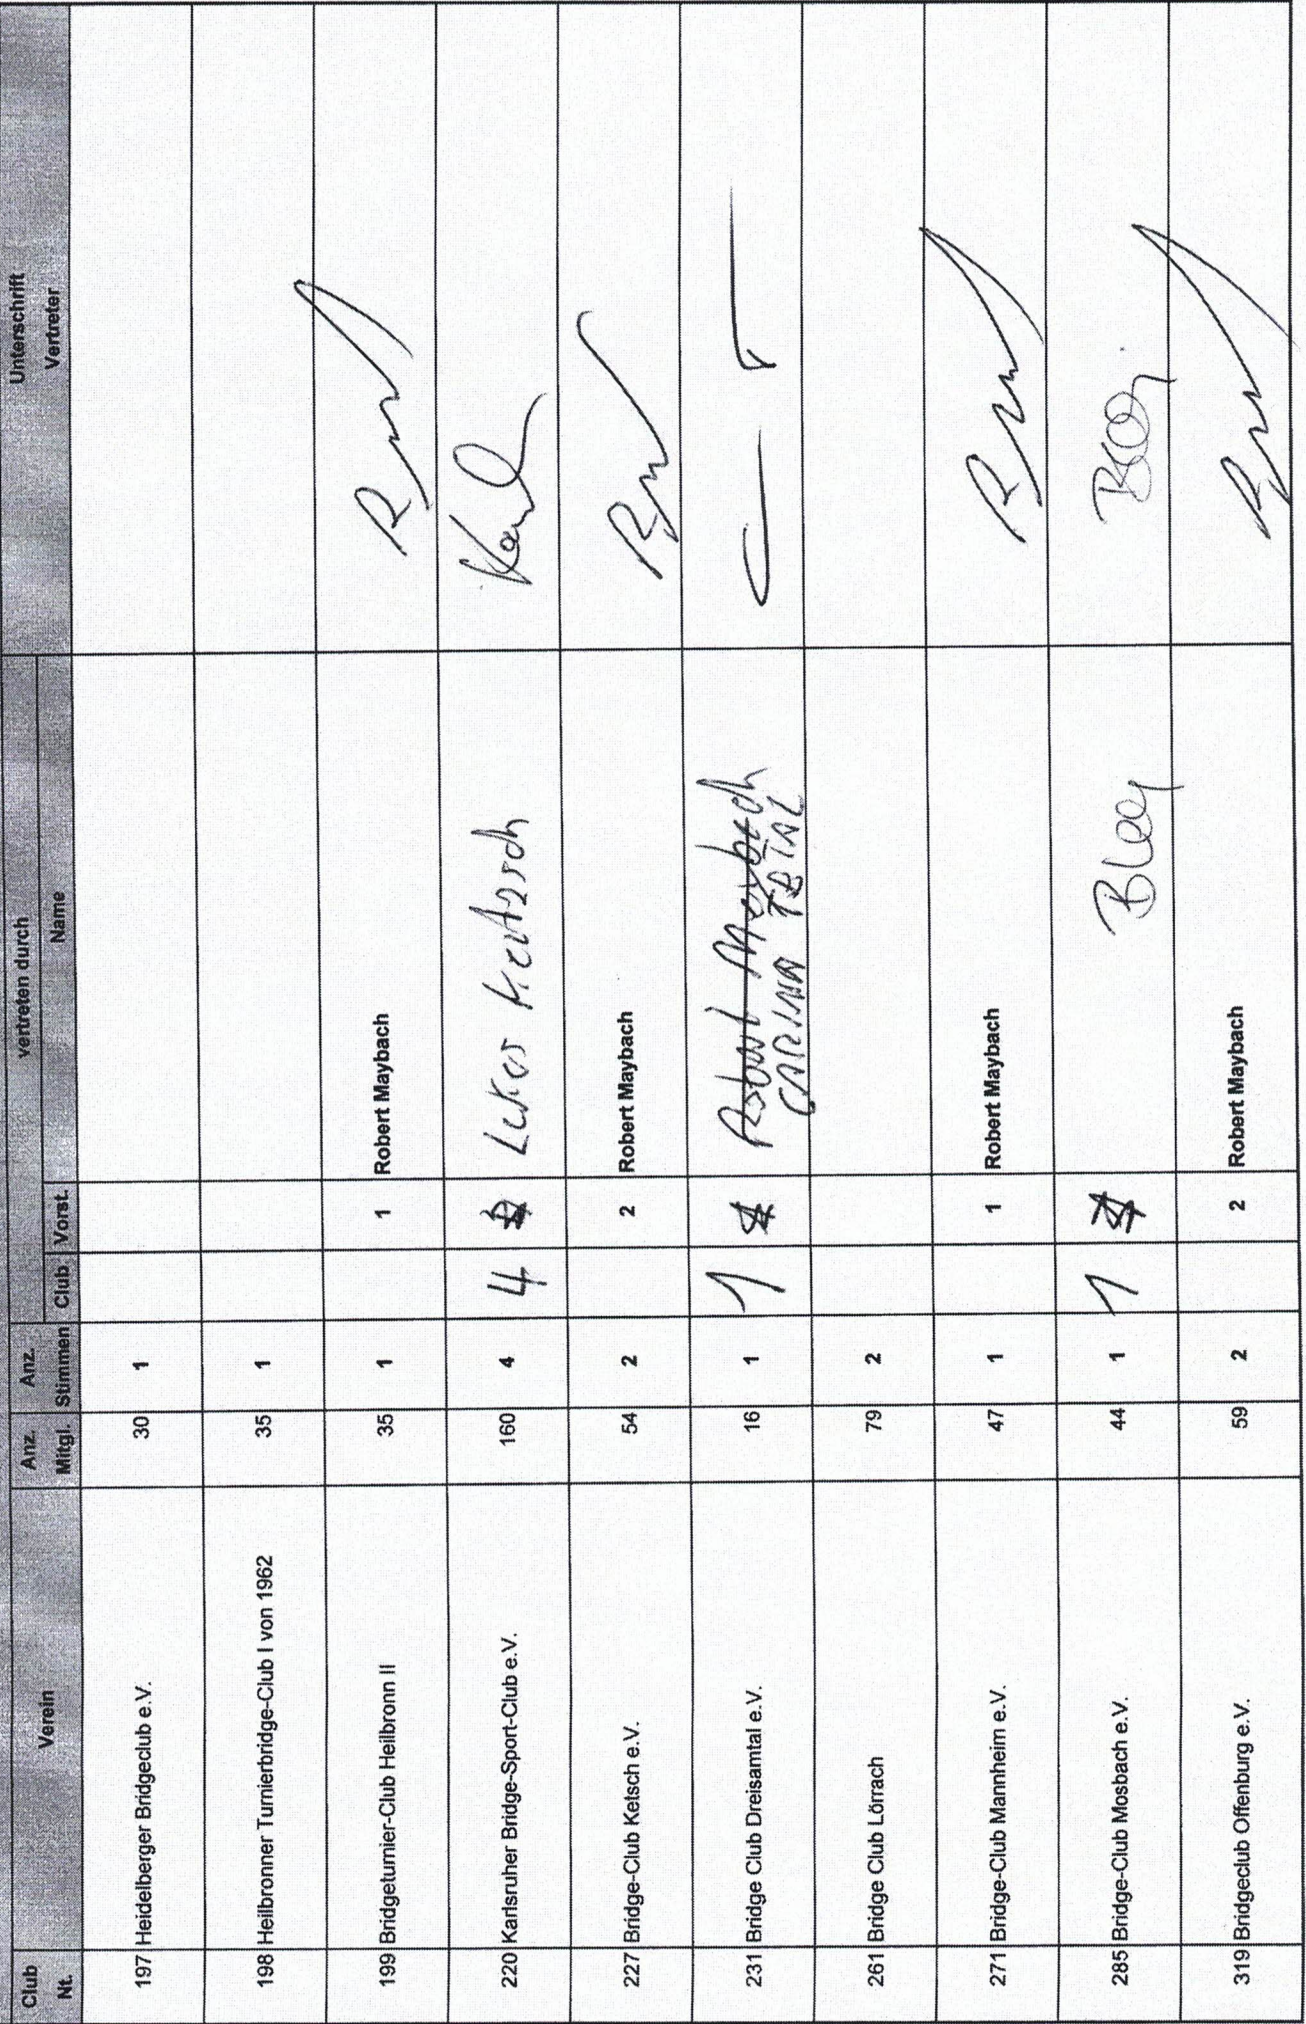 Club Nt. Verein Anz. Mitgl. Anz. Stimmen vertreten durch Club Vorst. Name Unterschrift Vertreter
197 Heidelberger Bridgeclub e.V. 30 1
198 Heilbronner Turnierbridge-Club I von 1962 35 1
199 Bridgeturnier-Club Heilbronn II 35 1 1 Robert Maybach
220 Karlsruher Bridge-Sport-Club e.V. 160 4 4
227 Bridge-Club Ketsch e.V. 54 2 2 Robert Maybach
231 Bridge Club Dreisamtal e.V. 16 1 1 Robert Maybach
CARINA
261 Bridge Club Lörrach 79 2
271 Bridge-Club Mannheim e.V. 47 1 1 Robert Maybach
285 Bridge-Club Mosbach e.V. 44 1 1
319 Bridgeclub Offenburg e.V. 59 2 2 Robert Maybach